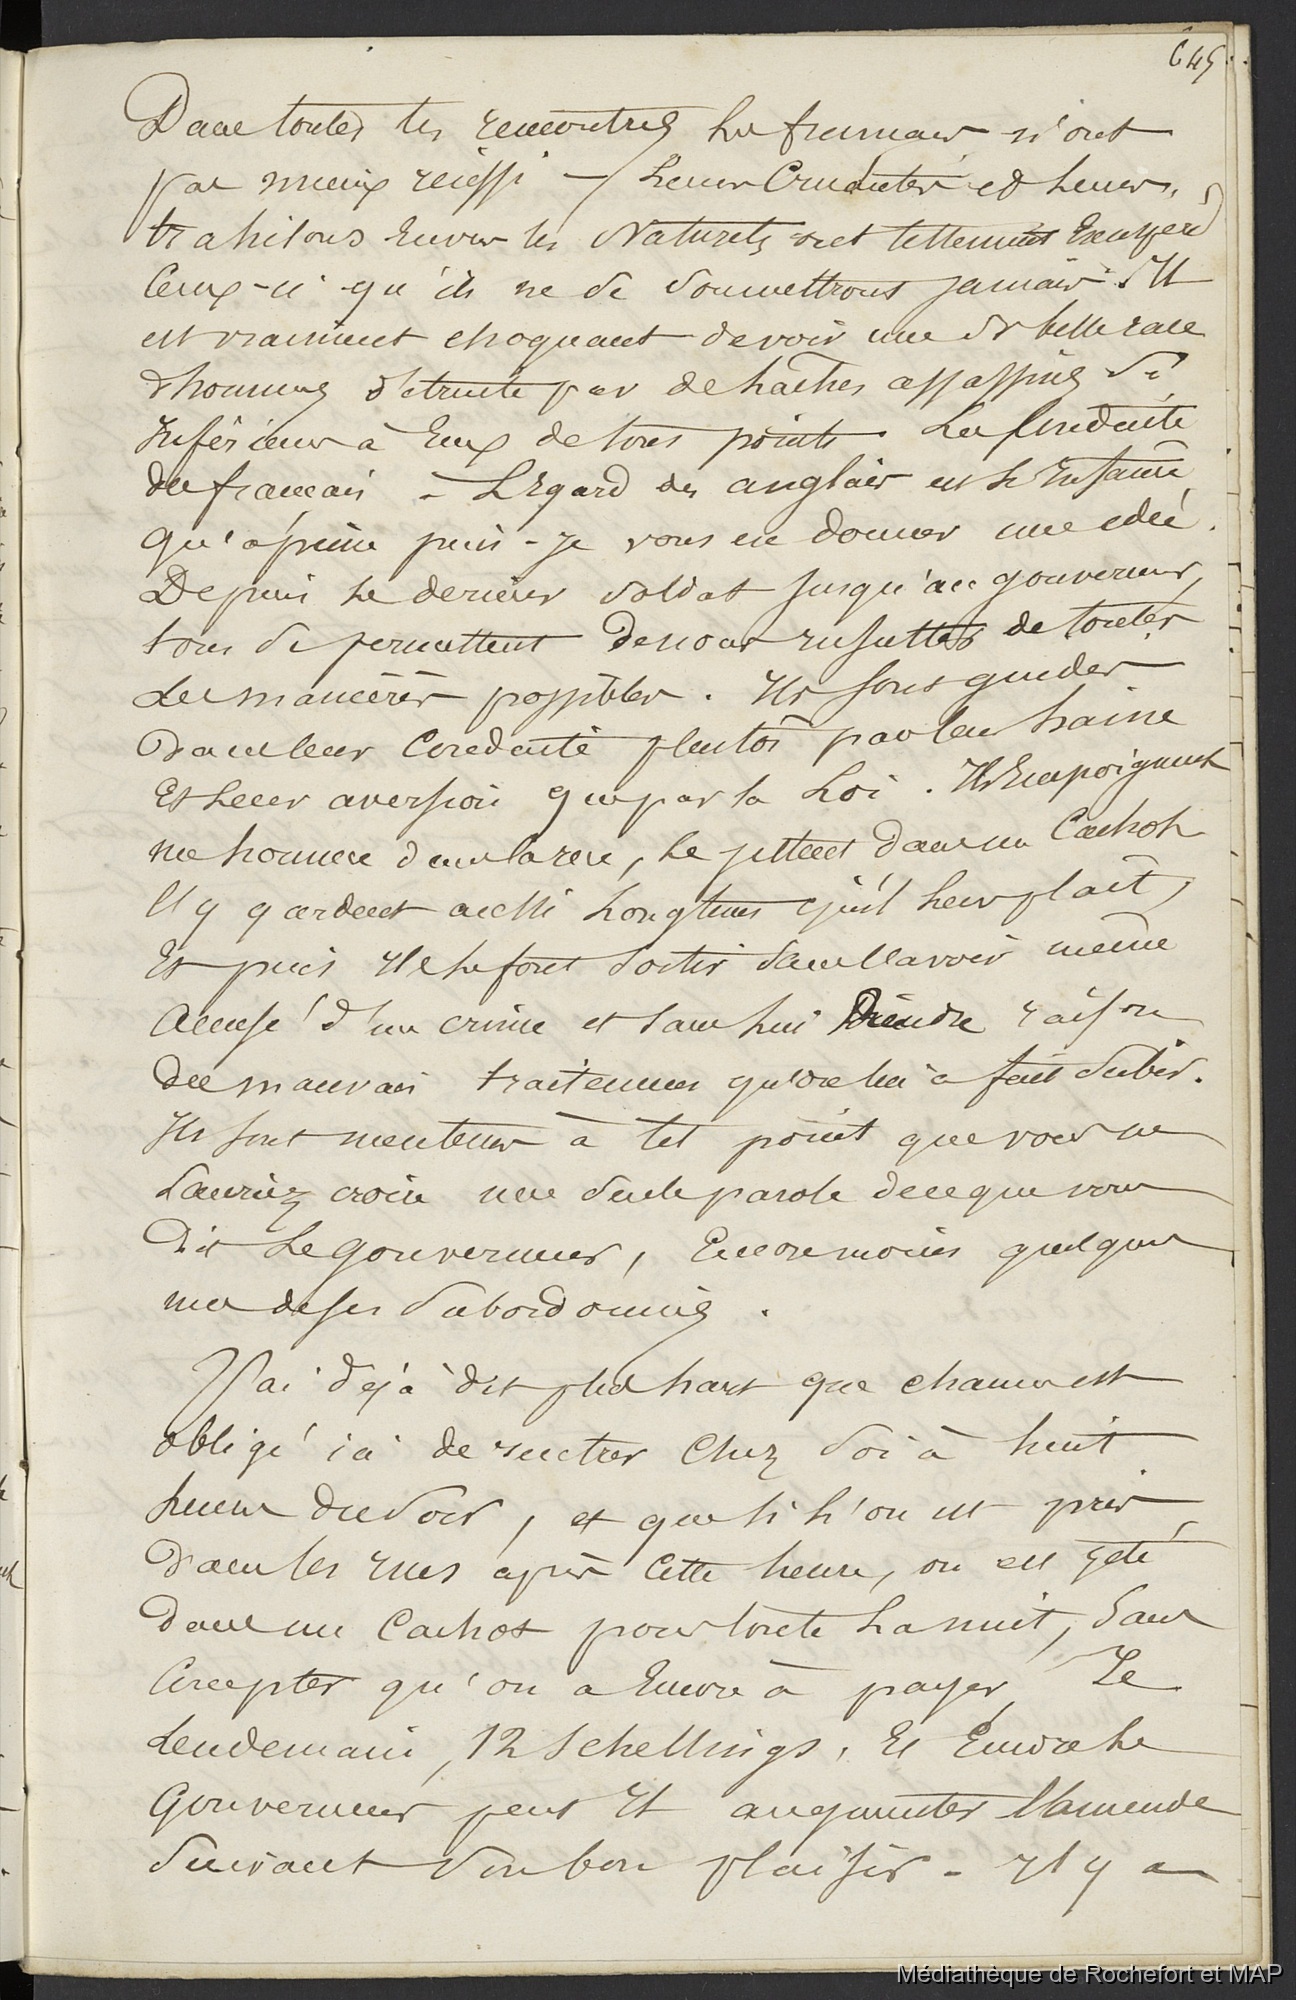 645
Dans toutes les rencontres les français n'ont
pas mieux réussi — Leurs Cruautés et leurs
trahisons Envers les Naturels ont tellement Exaspéré
Ceux-ci qu'ils ne se soumettront jamais. Il
est vraiment choquant de voir une si belle race
d'hommes détruite par de lâches assassins si
Inférieurs à Eux de tous points. La Conduite
des français à L'Egard des anglais est si Infame
qu'à peine puis-je vous en donner une idée.
Depuis le dernier soldat Jusqu'au gouverneur,
tous se permettent De nous insulter de toutes
Les manières possibles. Ils sont guidés
Dans leur Conduite plutôt par leur haine
Et Leur aversion que par la Loi. Ils Empoignent
un homme dans la rue, Le jettent Dans un Cachot
L'y gardent aussi Longtems qu'il leur plait,
Et puis Ils le font sortir sans l'avoir même
accusé d'un crime et sans lui Rendre raison
des mauvais traitemens qu'on lui a fait subir.
Ils sont menteurs à tel point que vous ne
Sauriez croire une seule parole de ce que vous
Dit Le gouverneur, Encore moins quelques
uns de ses subordonnés.
J'ai déjà dit plus haut que chacun est
obligé ici de rentrer Chez soi à huit
heures du soir, et que si l'on est pris
Dans les rues après Cette heure, on est jeté
Dans un Cachot pour toute La nuit, sans
Compter qu'on a Encore à payer, Le
Lendemain, 12 schellings, Et Encore le
Gouverneur peut Il augmenter l'amende
suivant son bon plaisir - Il y a
Médiathèque de Rochefort et MAP